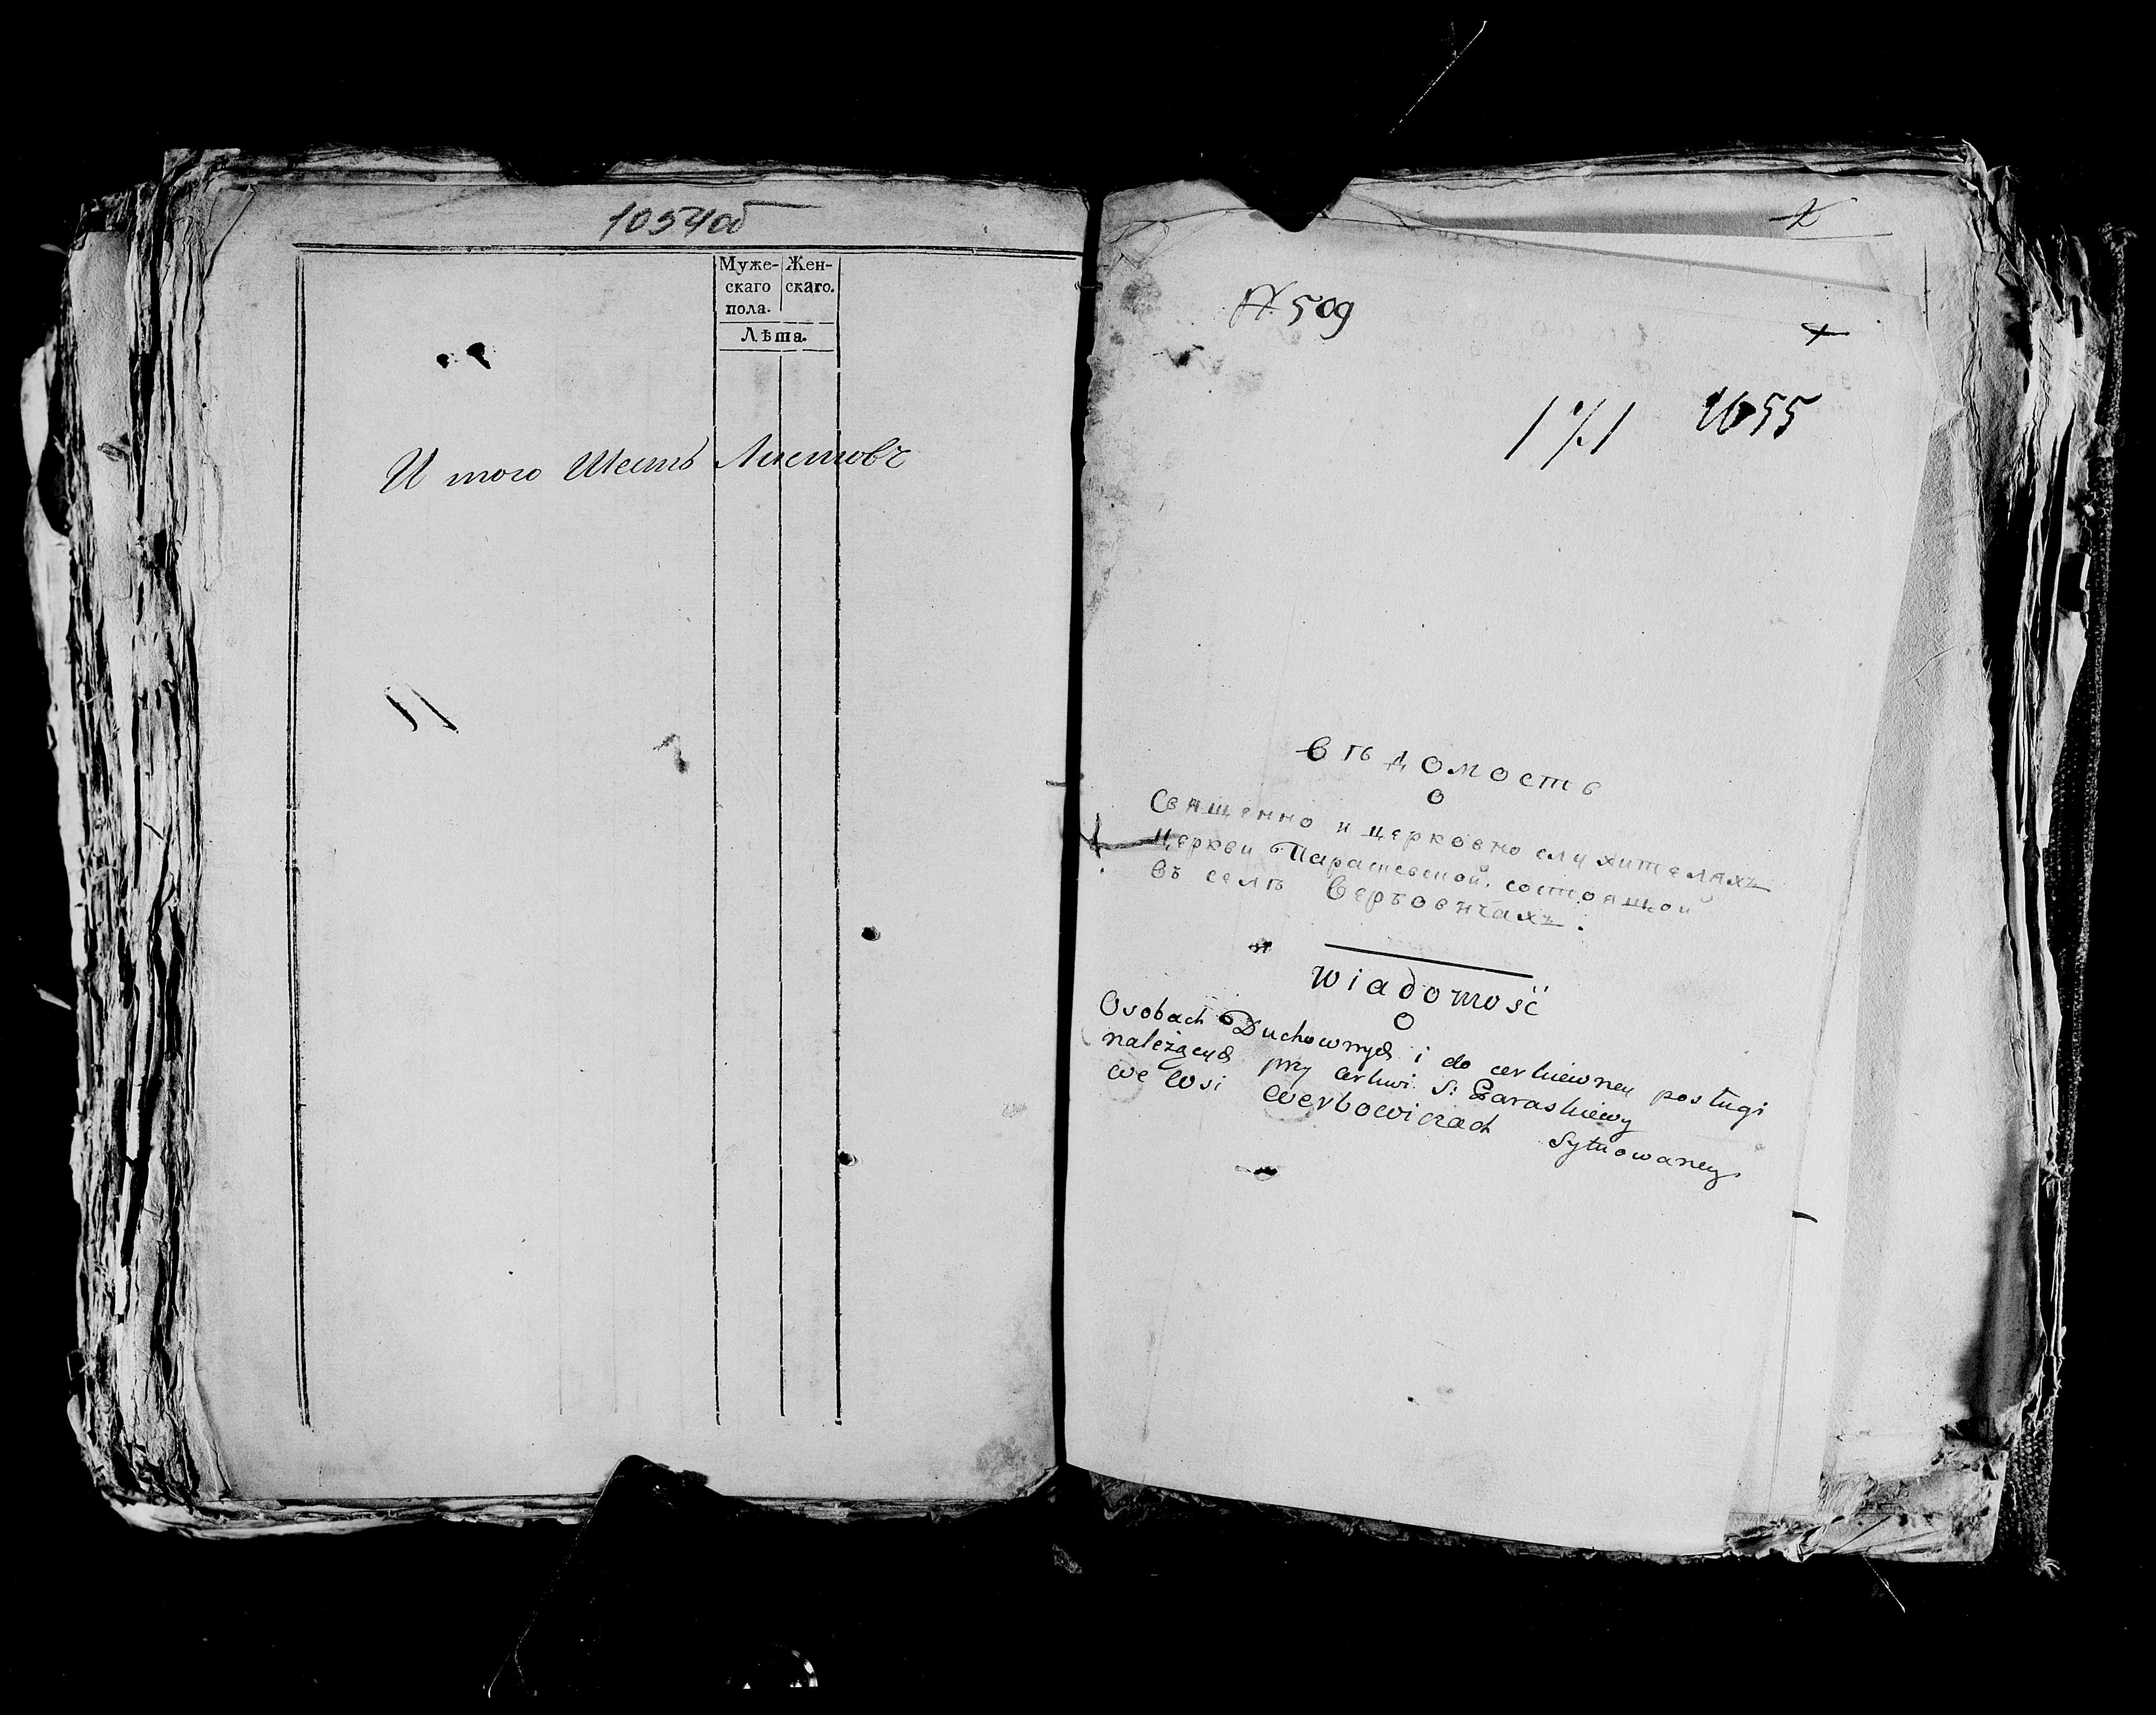 1054об
Муже- Жен-
скаго скаго.
пола.
Лѣта.
И того Шесть Листовъ
№ 509
171 1055
Вѣдомость
о
Священно и церковно служителяхъ
Церкви Параскевской, состоящой
въ селѣ Вербовичахъ.
Wiadomość
O
Osobach Duchownych i do cerkiewney posługi
należących przy cerkwi S: Paraskiewy
we wsi Werbowiczach Sytuowaney